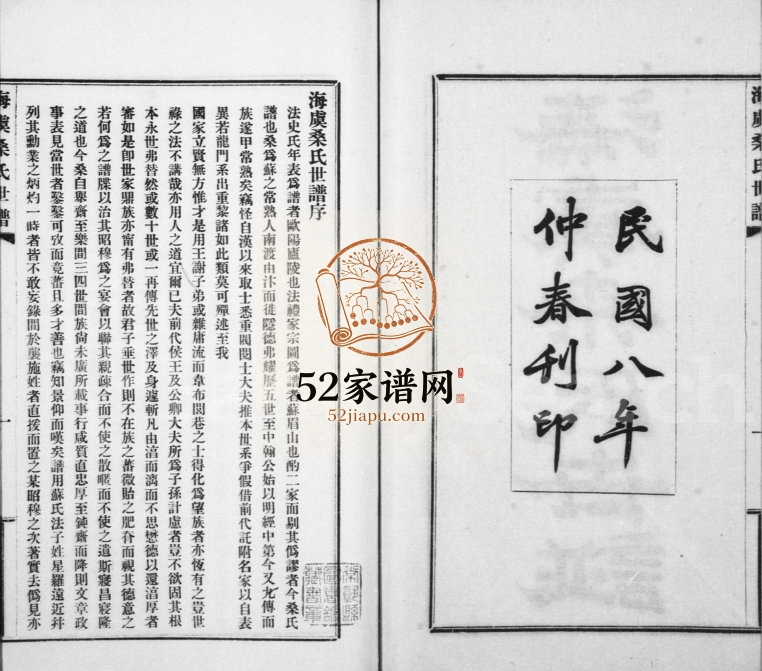 海虞桑氏世譜
民國八年
仲春刊印
海虞桑氏世譜序
法史氏年表爲譜者歐陽廬陵也法禮家宗圖爲譜者蘇眉山也酌二家而剔其僞謬者今桑氏
譜也桑爲蘇之常熟人南渡由汴而徙隱德弗耀歷五世至中翰公始以明經中第今又九傳而
族遂甲常熟矣竊怪自漢以來取士悉重閥閱士大夫推本世系爭假借前代託附名家以自表
異若龍門系出重黎諸如此類莫可殫述至我
國家立賢無方惟才是用王謝子弟或雜庸流而韋布閭巷之士得化爲望族者亦恆有之豈世
祿之法不講哉亦用人之道宜爾已夫前代侯王及公卿大夫所爲子孫計慮者豈不欲固其根
本永世弗替然或數十世或一再傳先世之澤及身遽斬凡由涪而漓而不思懋德以還涪厚者
審如是卽世家鼎族亦甯有弗替者故君子垂世作則不在族之蕃微貽之肥脊而視其德意之
若何爲之譜牒以治其昭穆爲之宴會以聯其親疎合而不使之散暱而不使之遺斯寢昌寢隆
之道也今桑自舉齋至樂閒三四世間族尙未廣所載事行咸質直忠厚至鈍齋而降則文章政
事表見當世者鑿鑿可攷而竟蕃且多才善也竊知景仰而嘆矣譜用蘇氏法子姓星羅遠近幷
列其勳業之炳灼一時者皆不敢妄錄間於襲施姓者直援而置之某昭穆之次著實去僞見亦
海虞桑氏世譜
一
52家谱网
52jiapu.com